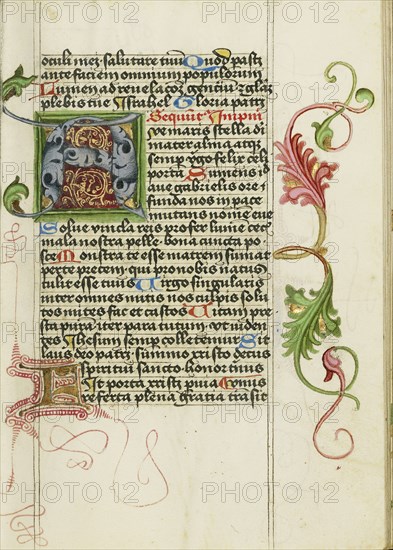 oculi mei salutare tuū Quod pasti
ante faciem omnium populorum
Lumen ad reuelacōꝫ genciū ⁊ glaꝫ
plebis tue Israhel Gloria patri
Sequit̄ Impn
Ave maris stella di
mater alma atqꝫ
semp v̄go felix celi
porta Sumens
que gabrielis ore
funda nos in pace
mutans nomē eue
Solue vincla reis profer lumē ceci
mala nostra pelle bona cuncta po
sce Monstra te esse matrem sumat
per te precem qui pro nobis natus
tulit esse tuus Virgo singularis
inter omnes mitis nos culpis solu
tos mites fac et castos Vitam pre
sta puram iter para tutū vt uiden
tes Jhesum semp colletemur Sit
laus deo patri summo xristo decus
spiritui sancto honor
porta xristi puia
referta plena gratia trāsit
PHOTO 12